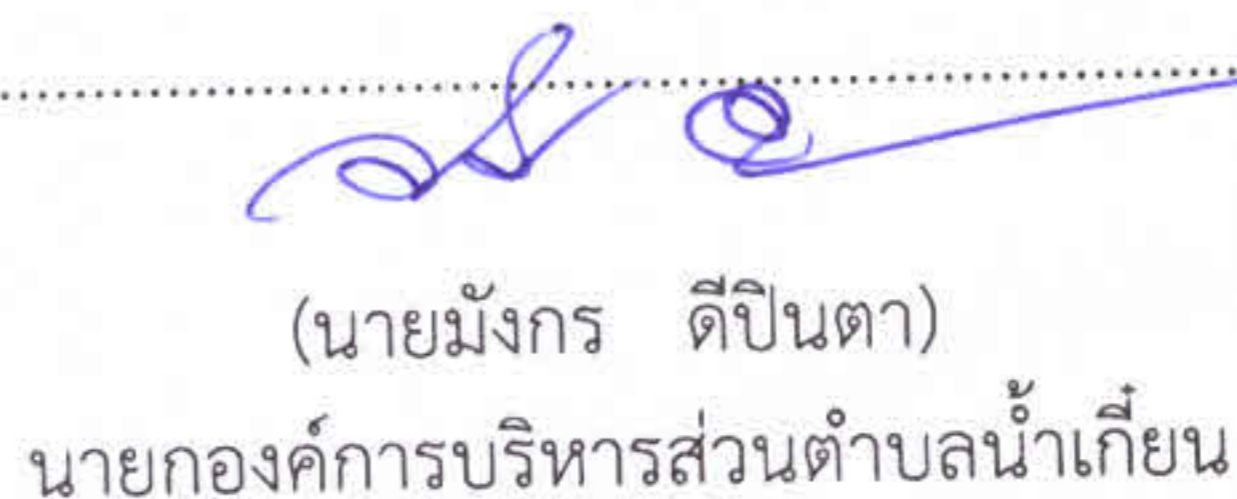 (นายมังกร ดีปินตา)
นายกองค์การบริหารส่วนตำบลน้ำเกี๋ยน